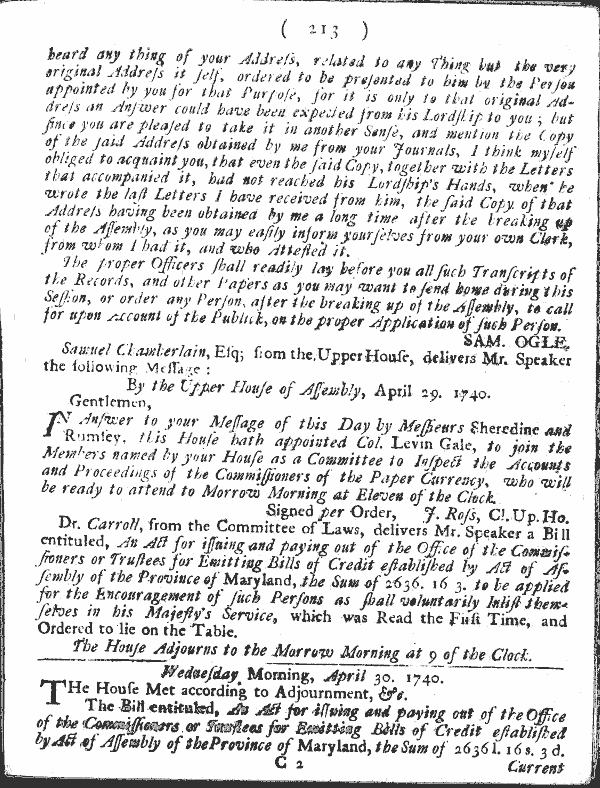 ( 213 )
heard any thing of your Addreſs, related to any Thing but the very
original Addreſs it ſelf, ordered to be preſented to him by the Perſon
appointed by you for that Purpoſe, for it is only to that original Ad-
dreſs an Anſwer could have been expected from his Lordſhip to you; but
ſince you are pleaſed to take it in another Senſe, and mention the Copy
of the ſaid Addreſs obtained by me from your Journals, I think myſelf
obliged to acquaint you, that even the ſaid Copy, together with the Letters
that accompanied it, had not reached his Lordſhip's Hands, when he
wrote the laſt Letters I have received from him, the ſaid Copy of that
Addreſs having been obtained by me a long time after the breaking up
of the Aſſembly, as you may eaſily inform yourſelves from your own Clerk,
from whom I had it, and who Atteſted it.
The proper Officers ſhall readily lay before you all ſuch Tranſcripts of
the Records, and other Papers as you may want to ſend home during this
Seſſion, or order any Perſon, after the breaking up of the Aſſembly, to call
for upon Account of the Publick, on the proper Application of ſuch Perſon.
SAM. OGLE,
Samuel Chamberlain, Eſq; from the Upper Houſe, delivers Mr. Speaker
the following Meſſage :
By the Upper Houſe of Aſſembly, April 29. 1740.
Gentlemen,
IN Anſwer to your Meſſage of this Day by Meſſieurs Sheredine and
Rumſey, this Houſe hath appointed Col. Levin Gale, to join the
Members named by your Houſe as a Committee to Inſpect the Accounts
and Proceedings of the Commiſſioners of the Paper Currency, who will
be ready to attend to Morrow Morning at Eleven of the Clock.
Signed per Order, J. Roſs, Cl. Up. Ho.
Dr. Carroll, from the Committee of Laws, delivers Mr. Speaker a Bill
entituled, An Act for iſſuing and paying out of the Office of the Commiſ-
ſioners or Truſtees for Emitting Bills of Credit eſtabliſhed by Act of Aſ-
ſembly of the Province of Maryland, the Sum of 2636. 16 3. to be applied
for the Encouragement of ſuch Perſons as ſhall voluntarily Inliſt them-
ſelves in his Majeſty's Service, which was Read the Firſt Time, and
Ordered to lie on the Table.
The Houſe Adjourns to the Morrow Morning at 9 of the Clock.
Wedneſday Morning, April 30. 1740.
THe Houſe Met according to Adjournment, &c.
The Bill entituled, An Act for iſſuing and paying out of the Office
of the Commiſſioners or Truſtees for Emitting Bills of Credit eſtabliſhed
by Act of Aſſembly of the Province of Maryland, the Sum of 2636 l. 16 s. 3 d.
C 2
Current